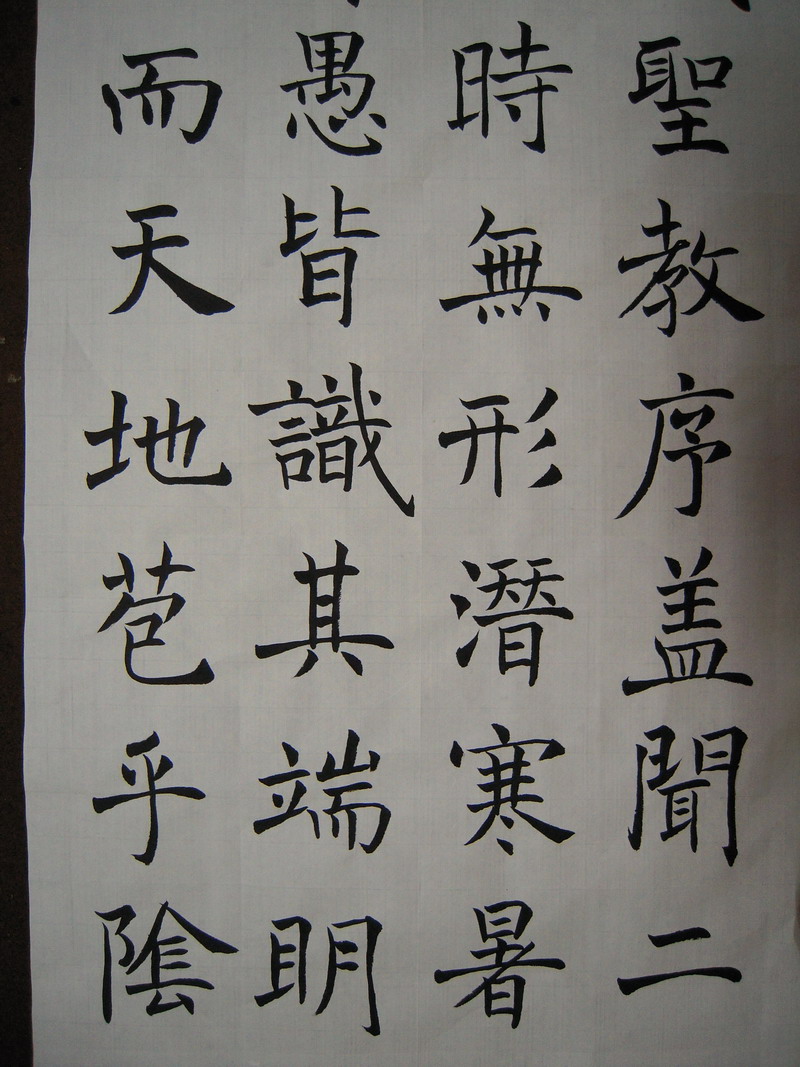 聖教序盖聞二
時無形潛寒暑
愚皆識其端明
而天地苞乎陰